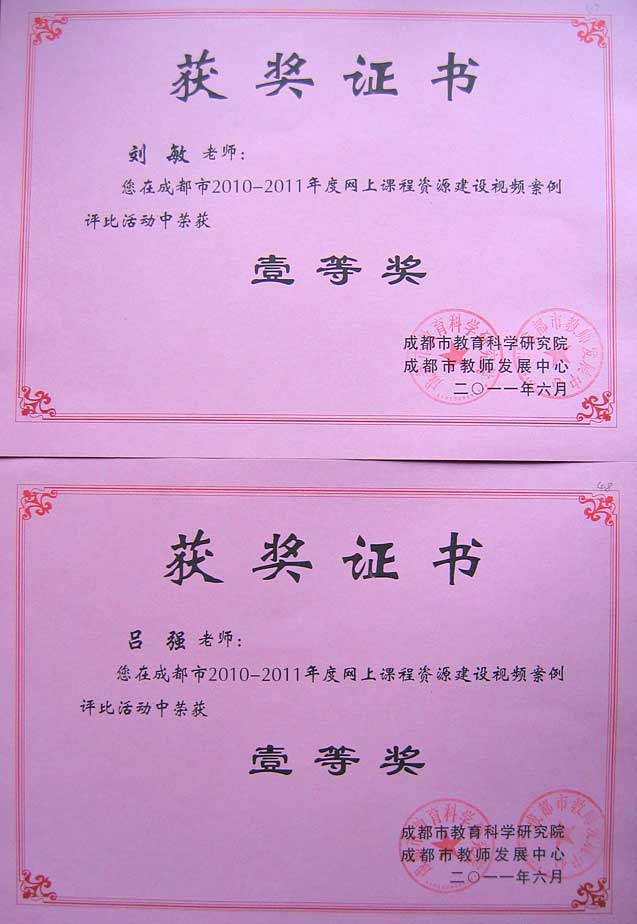 获奖证书
刘敏老师：
您在成都市2010-2011年度网上课程资源建设视频案例
评比活动中荣获
壹等奖
成都市教育科学研究院
成都市教师发展中心
二〇一一年六月
获奖证书
吕强老师：
您在成都市2010-2011年度网上课程资源建设视频案例
评比活动中荣获
壹等奖
成都市教育科学研究院
成都市教师发展中心
二〇一一年六月